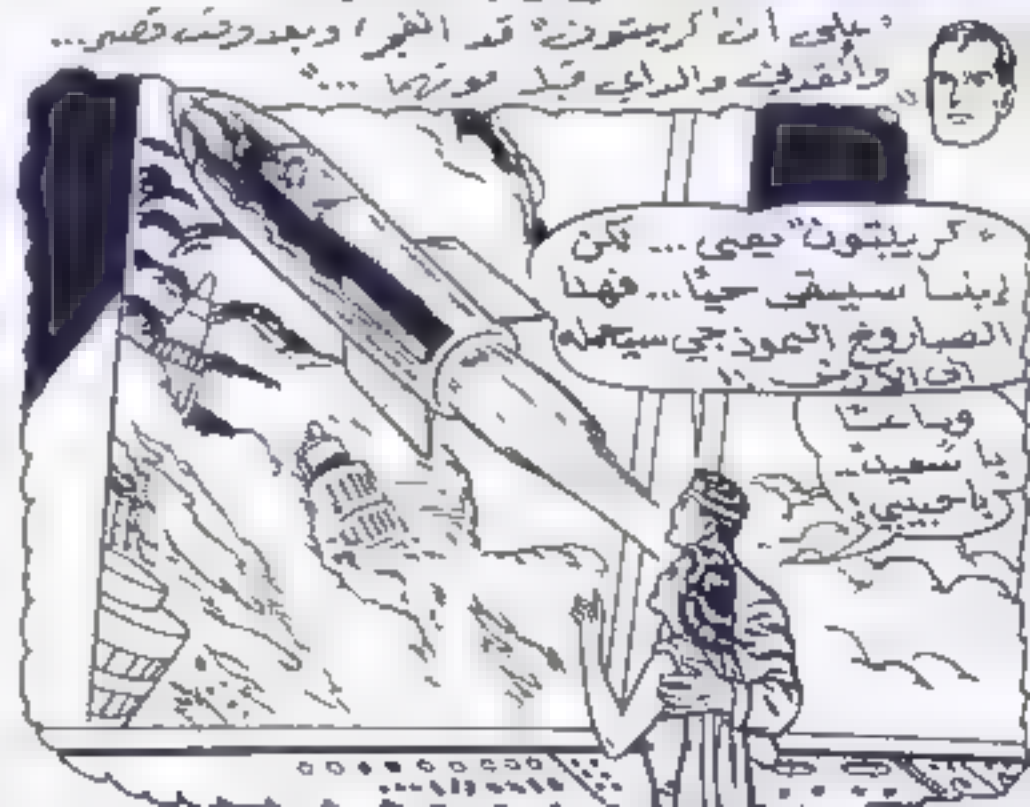 بلى ان "كريبتون" قد انفجر! وبعد وقت قصير...
وأنقذني والداي قبل موتهما ..."
"كريبتون" يفنى ... لكن
إبننا سيبقى حيّاً... فهذا
الصاروخ النموذجي سيحمله
الى الأرض !!
وداعاً
يا
يا حبيبي!